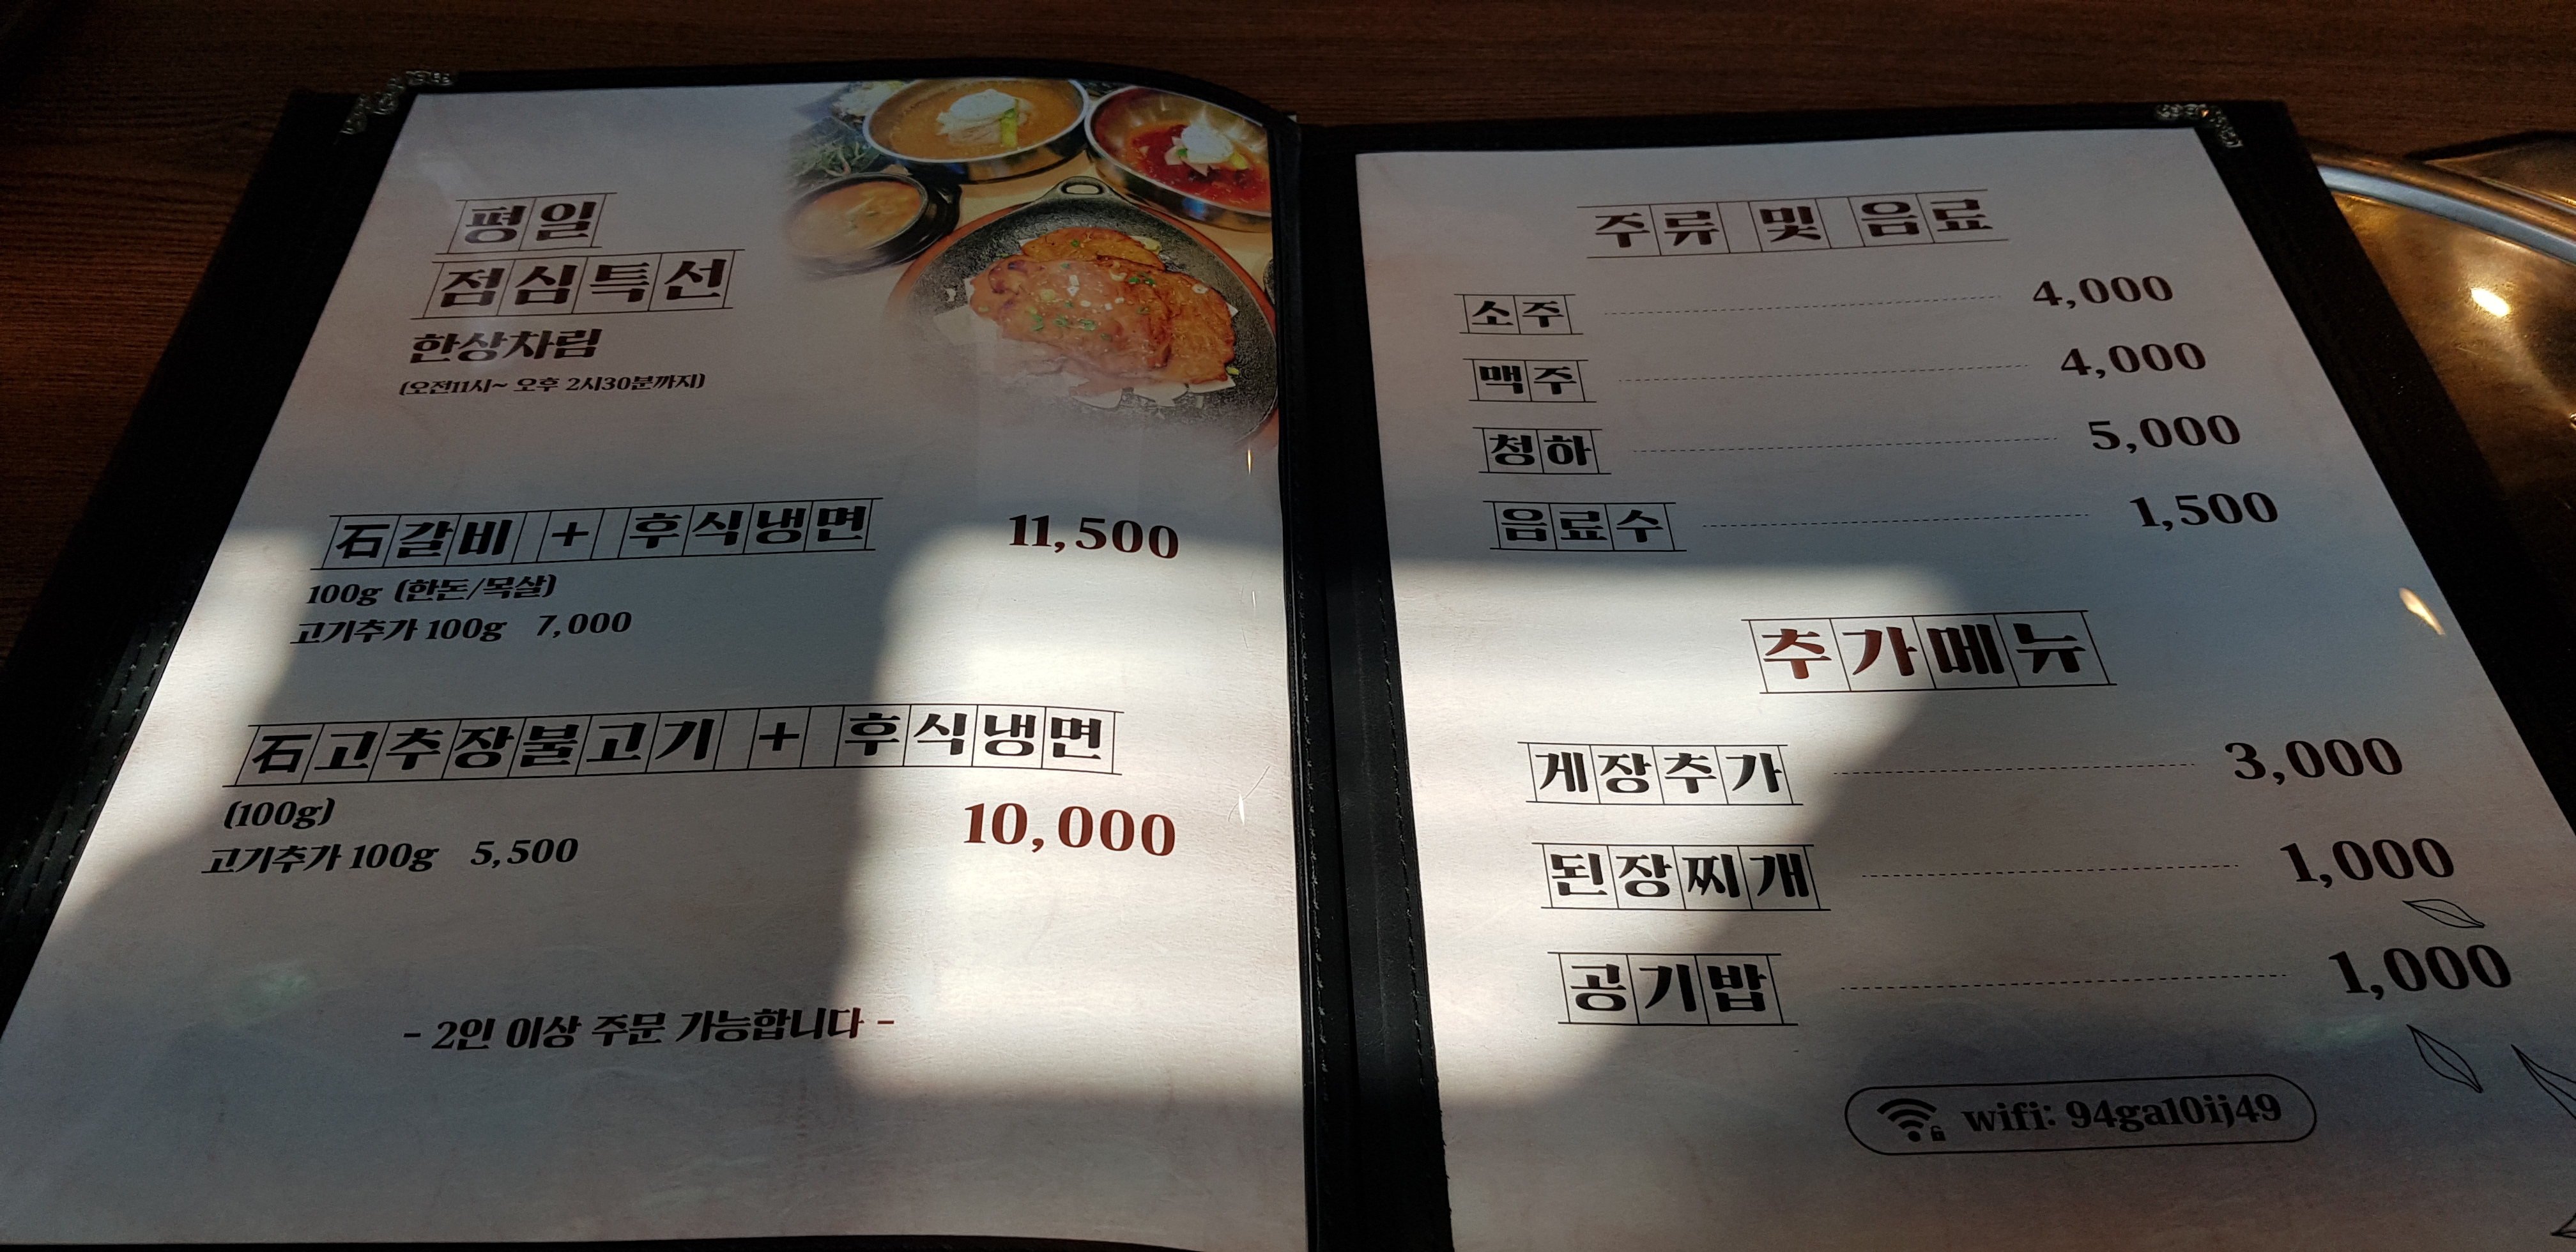 평일
점심특선
한상차림
(오전11시~ 오후 2시30분까지)
石갈비 + 후식냉면 11,500
100g (한돈/목살)
고기추가 100g 7,000
石고추장불고기 + 후식냉면
(100g) 10,000
고기추가 100g 5,500
- 2인 이상 주문 가능합니다 -
주류 및 음료
소주 4,000
맥주 4,000
청하 5,000
음료수 1,500
추가메뉴
게장추가 3,000
된장찌개 1,000
공기밥 1,000
wifi: 94ga10ij49